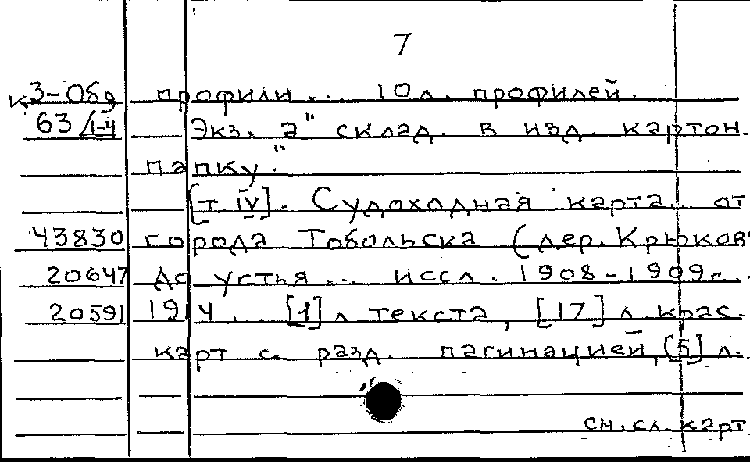 7
К3-Обд профили... 10 л. профилей.
63/I-4 Экз. "а" склад. в изд. картон.
папку.
[т. IV]. Судоходная карта от
43830 города Тобольска (дер. Крюков
20647 до устья... иссл. 1908-1909 г.
20591 1914. [1] л текста, [17] л крас.
карт с разд. пагинацией, [5] л.
см. сл. карт